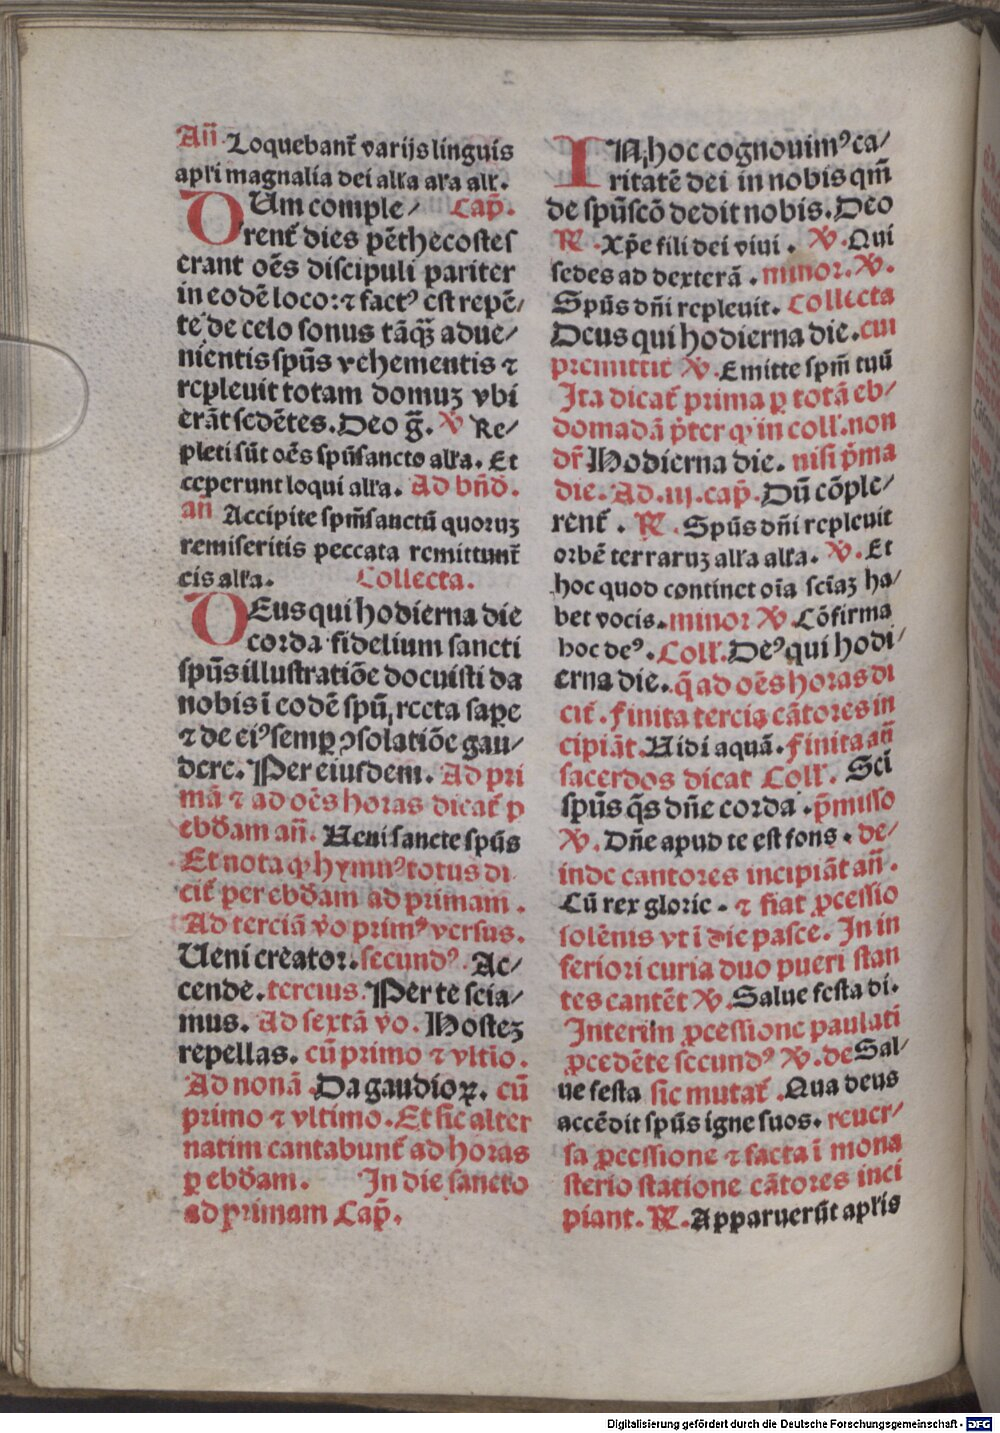 Añ Loquebant᷑ varijs linguis
apłi magnalia dei alła ała all̕.
DUm comple/ Cap̄.
rent᷑ dies pēthecostes
erant oēs discipuli pariter
in eodē loco:⁊ factꝰ est repē/
te de celo sonus tāꝙ̄ adue/
nientis spūs vehementis ⁊
repleuit totam domuꝫ vbi
erāt sedētes. Deo g̅. ℣ Re/
pleti sūt oēs spūsancto alła. Et
ceperunt loqui alła. Ad bn̄d̄.
añ Accipite spm̄sanctū quoruꝫ
remiseritis peccata remittunt᷑
eis alła. Collecta.
DEus qui hodierna die
corda fidelium sancti
spūs illustratiōe docuisti da
nobis ī eodē spū, recta sape
⁊ de eiꝰ semꝑ ↄsolatiōe gau/
dere. Per eiusdem. Ad pri
mā ⁊ ad oēs horas dicat᷑ ꝑ
ebd̄am añ. Ueni sancte spūs
Et nota ꝙ hymnꝰ totus di
cit᷑ per ebd̄am ad primam.
Ad terciā v̄o primꝰ versus.
Ueni creator. secundꝰ. Ac/
cende. tercius. Per te scia/
mus. Ad sextā vo. Hosteꝫ
repellas. cū primo ⁊ vltīo.
Ad nonā Da gaudioꝝ. cū
primo ⁊ vltimo. Et sic alter
natim cantabunt᷑ ad horas
ꝑ ebd̄am. In die sancto
ad primam Cap̄.
IN, hoc cognouimꝰ ca/
ritatē dei in nobis qm̄
de spūscō dedit nobis. Deo
℟. Xp̄e fili dei viui. ℣. Qui
sedes ad dexterā. minor. ℣.
Spūs dn̄i repleuit. Collecta
Deus qui hodierna die. cui
premittit ℣. Emitte spm̄ tuū
Ita dicat᷑ prima ꝑ totā eb/
domadā p̄ter ꝙ in coll̕. non
dr̄ Hodierna die. nisi p̄ma
die. Ad. iij. cap̄. Dū cōple/
rent᷑. ℟. Spūs dn̄i repleuit
orbē terraruꝫ alła alła. ℣. Et
hoc quod continet oīa sciāꝫ ha/
bet vocis. minor ℣. Cōfirma
hoc deꝰ. Coll̕. Deꝰ qui hodi/
erna die. q̄ ad oēs horas di
cit᷑. Finita tercia cātores in
cipiāt. Uidi aquā. Finita añ
sacerdos dicat Coll̕. Sci
spūs q̄s dn̄e corda. p̄misso
℣. Dn̄e apud te est fons. de/
inde cantores incipiāt añ.
Cū rex glorie. ⁊ fiat ꝓcessio
solēnis vt ī die pasce. In in
feriori curia duo pueri stan
tes cantēt ℣. Salue festa di.
Interim ꝓcessione paulati
ꝓcedēte secundꝰ ℣. de Sal/
ue festa sic mutat᷑. Qua deus
accēdit spūs igne suos. reuer/
sa ꝓcessione ⁊ facta ī mona
sterio statione cātores inci
piant. ℟. Apparuerūt aplis
Digitalisierung gefördert durch die Deutsche Forschungsgemeinschaft - DFG